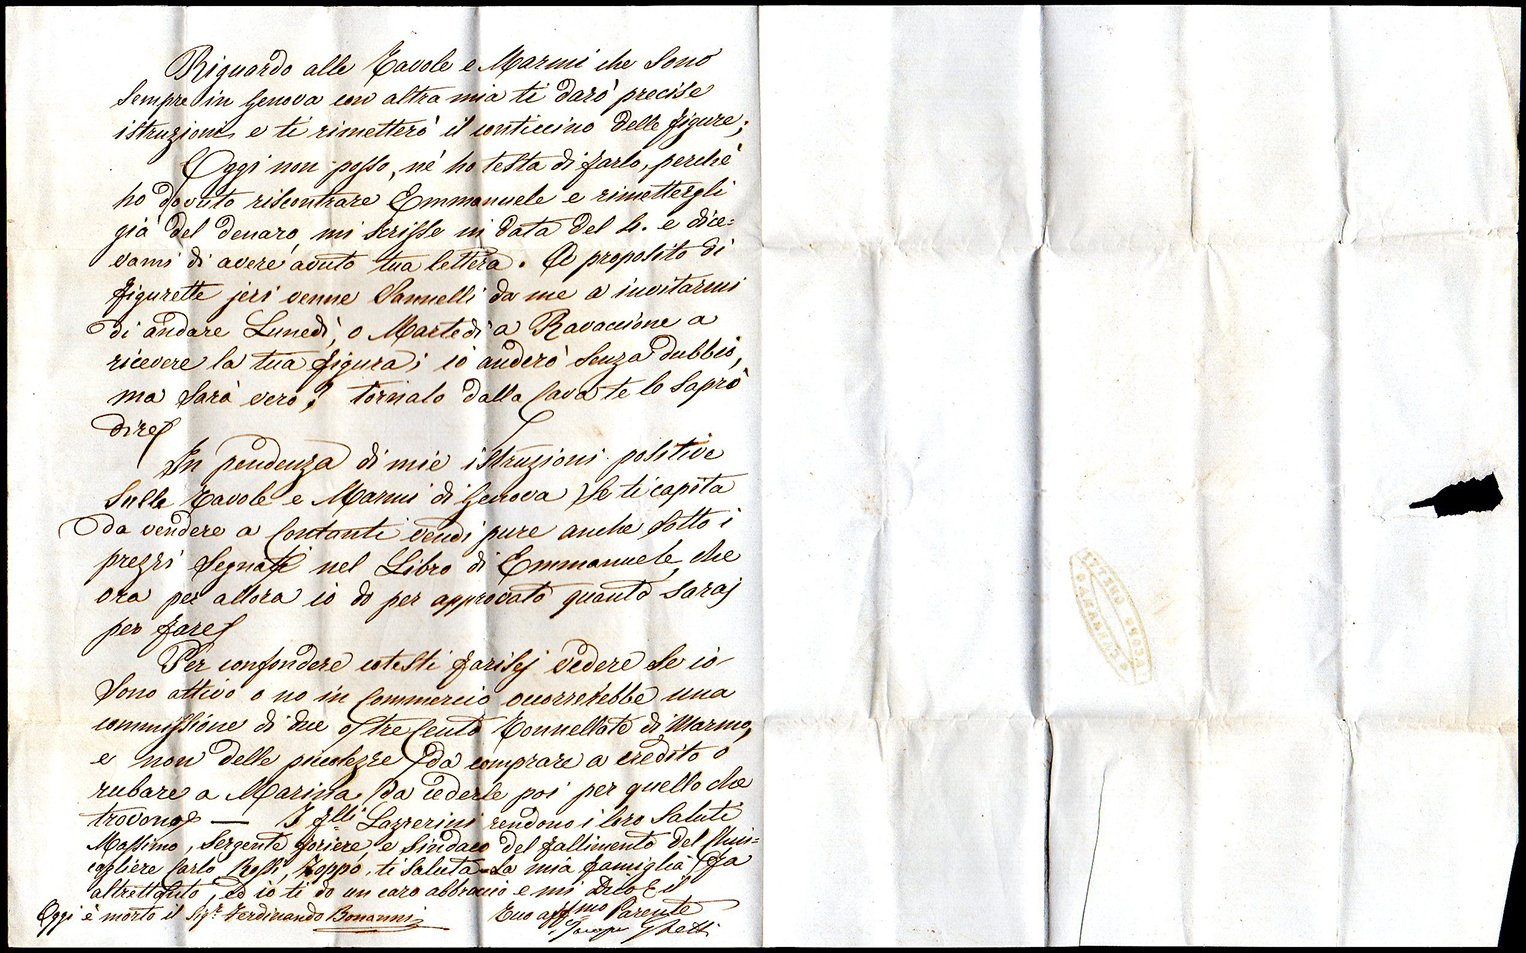 Riguardo alle Tavole e Marmi che sono
sempre in Genova con altra mia ti darò precise
istruzioni e ti rimetterò il conticino delle figure;
Oggi non posso, nè ho testa di farlo, perchè
ho dovuto riscontrare Emmanuele e rimettergli
già del denaro, mi scrisse in data del 4. e dice=
vami di avere avuto tua lettera. A proposito di
figurette jeri venne Vannelli da me a invitarmi
di andare Lunedì, o Martedì a Ravaccione a
ricevere la tua figura; io anderò senza dubbio,
ma sarà vero? tornato dalla Cava te lo saprò
dire
In pendenza di mie istruzioni positive
sulle Tavole e Marmi di Genova se ti capita
da vendere a Contanti vendi pure anche sotto i
prezzi segnati nel Libro di Emmanuele, che
ora per allora io do per approvato quanto saraj
per fare
Per confondere cotesti farisej vedere se io
sono attivo o no in Commercio occorrerebbe una
commissione di due o tre Cento Tonnellate di Marmo,
e non delle piccolezze da comprare a credito o
rubare a Marina da cederle poi per quello che
trovono — I flli Lazzerini rendono i loro saluti
Massimo, Sergente foriere e Sindaco del fallimento del
Carlo Rossi, Zoppo, ti saluta = La mia famiglia fa
altrettanto, ed io ti do un caro abbraccio e mi dico il
Oggi è morto il Sigr. Ferdinando Bonanni Tuo affmo Parente
Ghetti